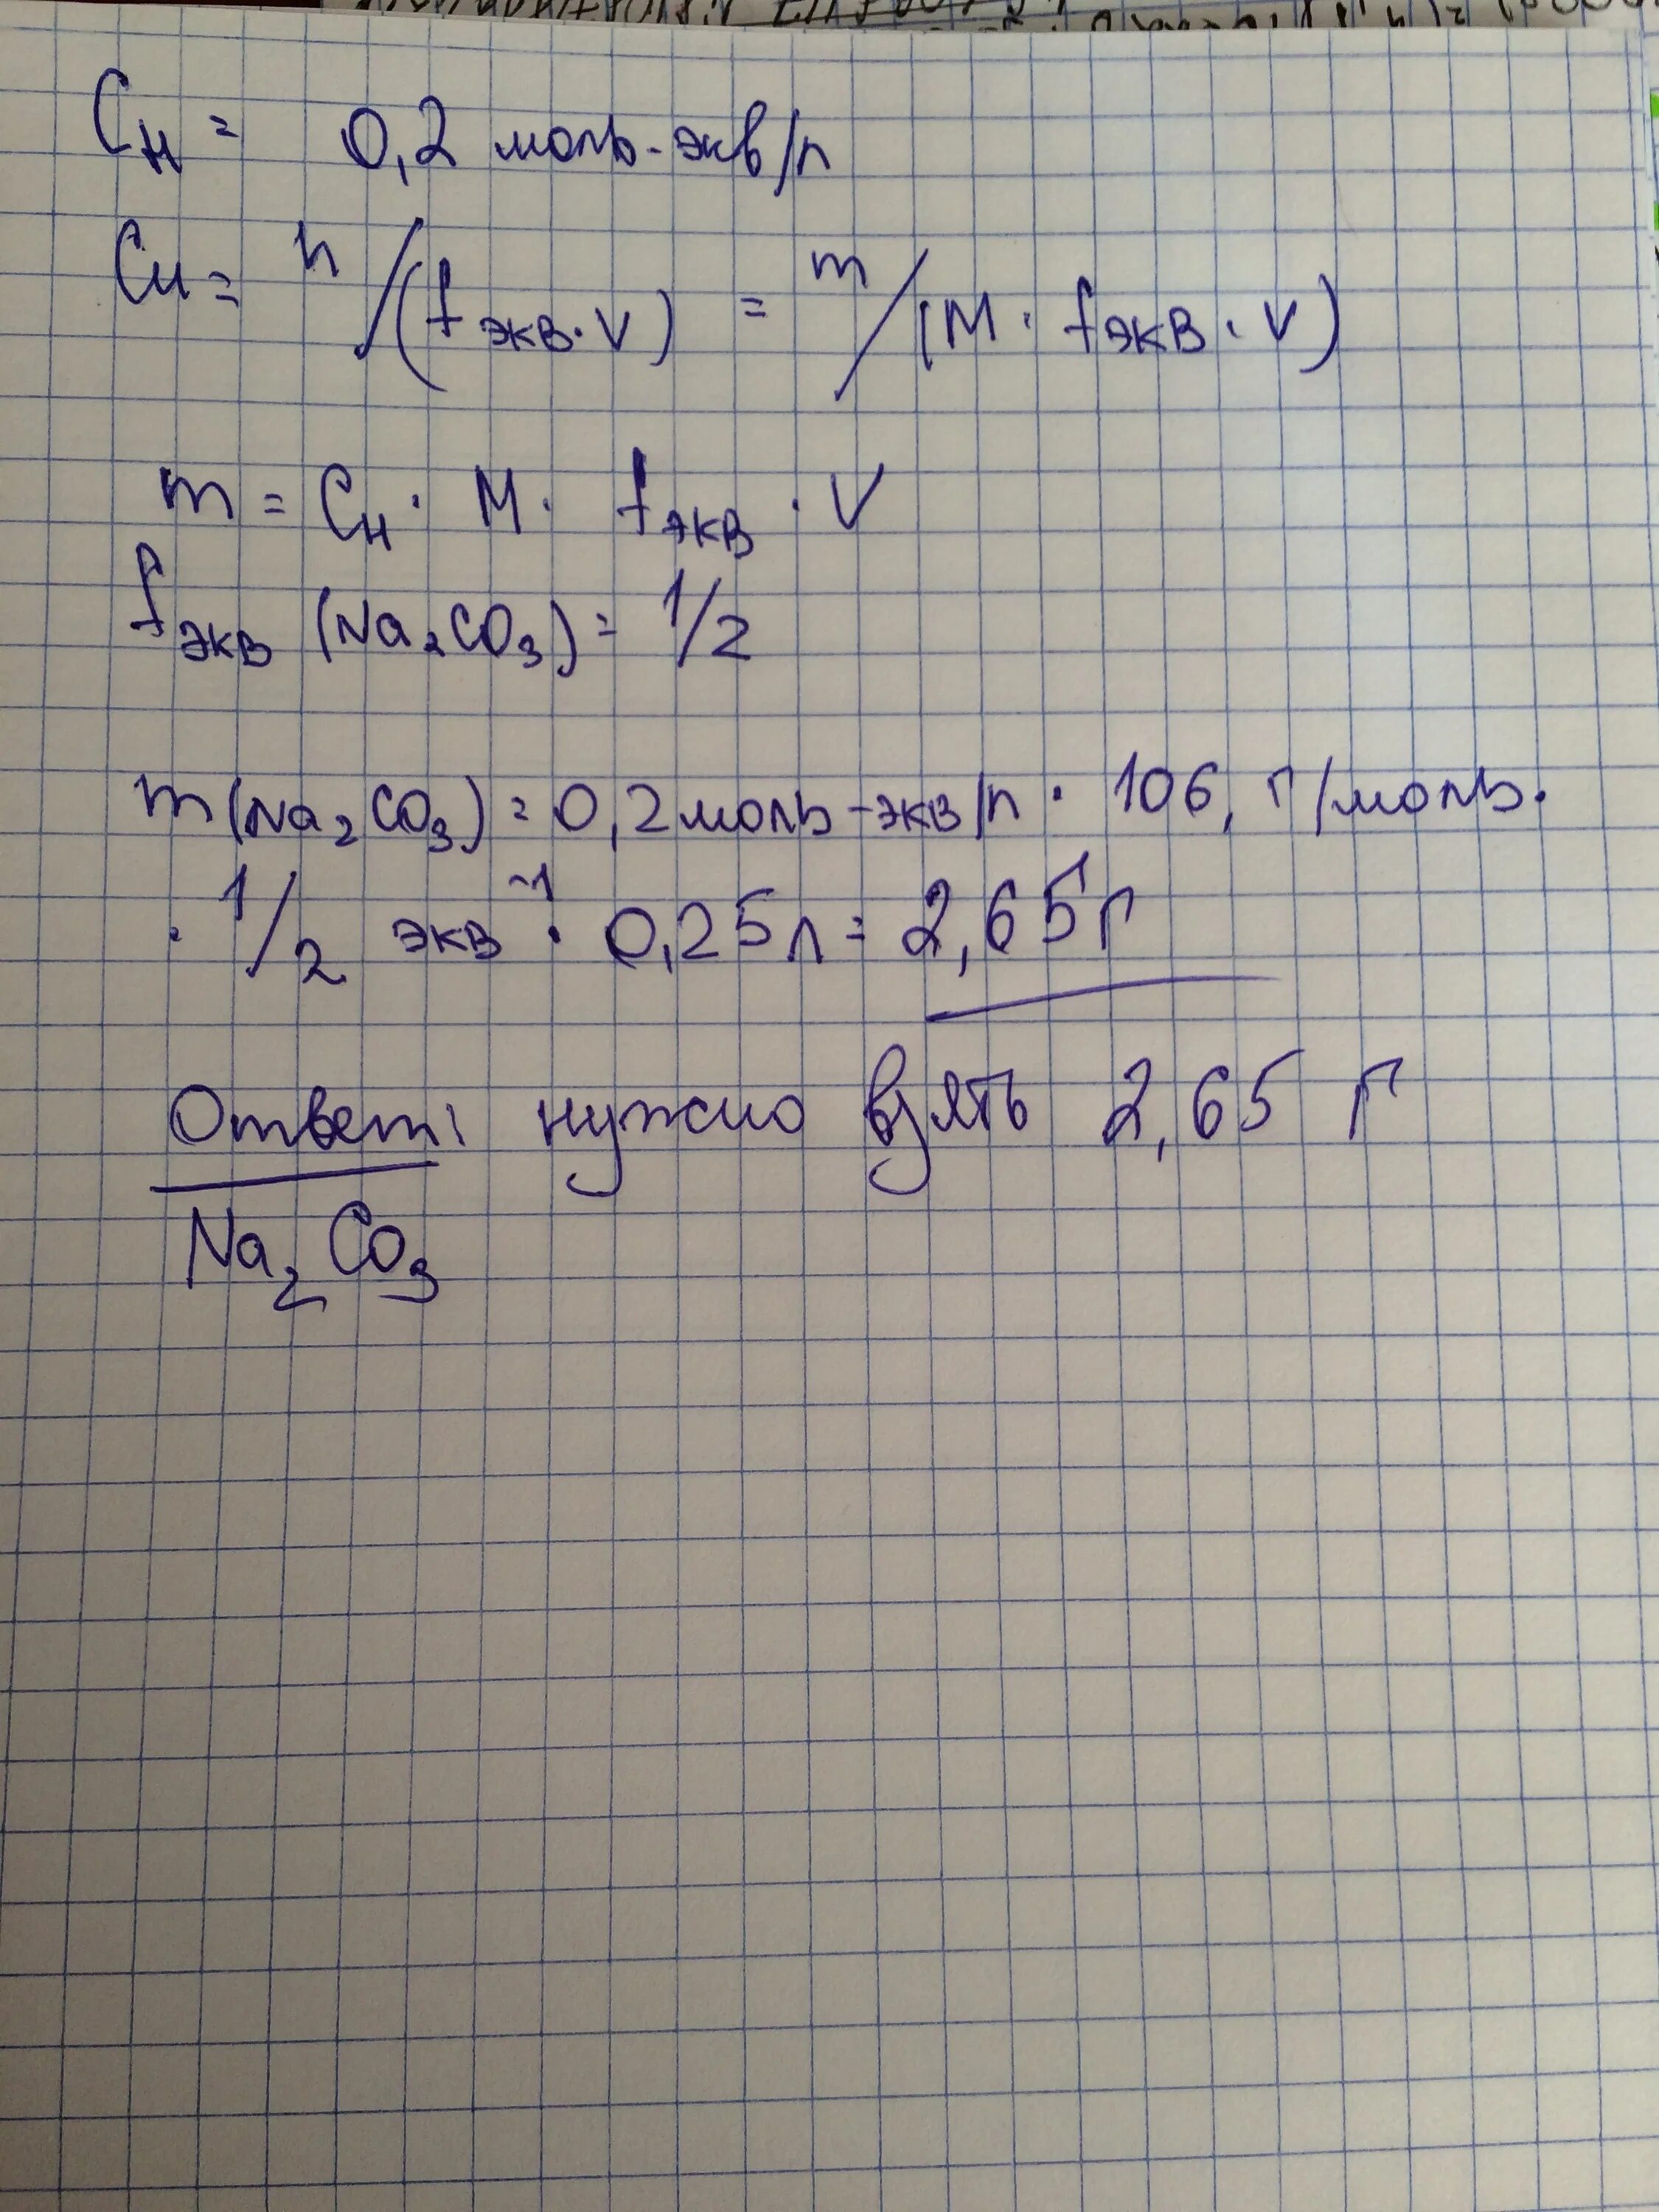 Cн = 0,2 моль-экв/л
Cн = n/(fэкв·V) = m/(M·fэкв·V)
m = Cн · M · fэкв · V
fэкв (Na₂CO₃) = 1/2
m(Na₂CO₃) = 0,2 моль-экв/л · 106, г/моль ·
· 1/2 экв⁻¹ · 0,25 л = 2,65 г
Ответ: нужно взять 2,65 г
Na₂CO₃